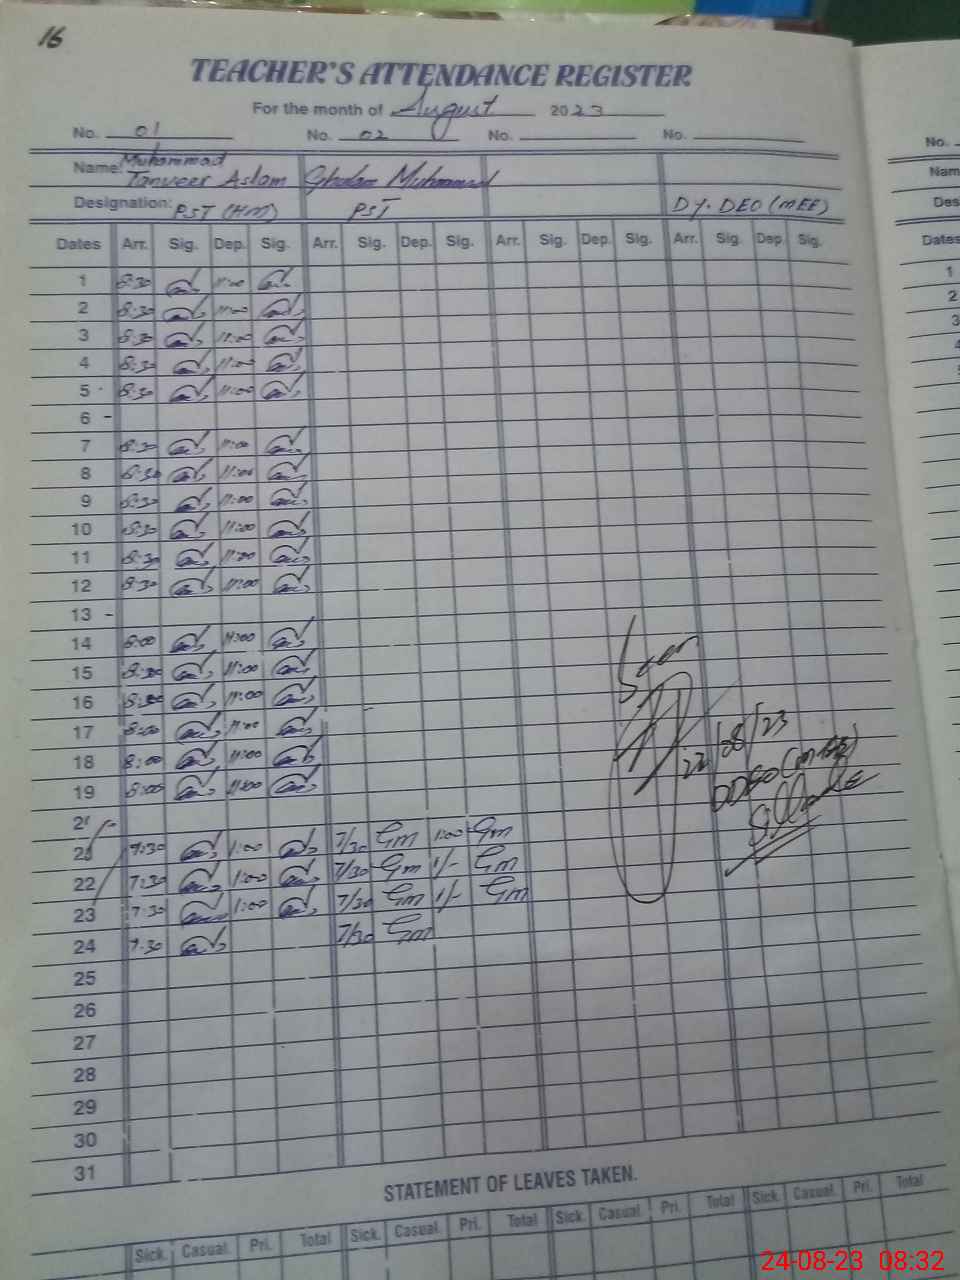 16
TEACHER'S ATTENDANCE REGISTER
For the month of August 2023
No. 01 No. 02 No. No.
Name: Muhammad Tanveer Aslam Ghulam Muhammad
Designation: PST (HM) PST Dy. DEO (MEE)
Dates Arr. Sig. Dep. Sig. Arr. Sig. Dep. Sig. Arr. Sig. Dep. Sig. Arr. Sig. Dep. Sig.
1 8:30 11:00
2 8:30 11:00
3 8:30 11:00
4 8:30 11:00
5 8:30 11:00
6 -
7 8:30 11:00
8 8:30 11:00
9 8:30 11:00
10 8:30 11:00
11 8:30 11:00
12 8:30 11:00
13 -
14 8:00 11:00
15 8:00 11:00
16 8:00 11:00
17 8:00 11:00
18 8:00 11:00
19 8:00 11:00
Seen
22/08/23
7:30 1:00 7/30 Gm 1:00 Gm
22 7:30 1:00 7/30 Gm 1/- Gm
23 7:30 1:00 7/30 Gm 1/- Gm
24 7:30 7/30 Gm
25
26
27
28
29
30
31
STATEMENT OF LEAVES TAKEN.
Sick. Casual. Pri. Total Sick. Casual. Pri. Total Sick. Casual. Pri. Total Sick. Casual. Pri. Total
No.
Nam
Des
Dates
1
2
3
24-08-23 08:32